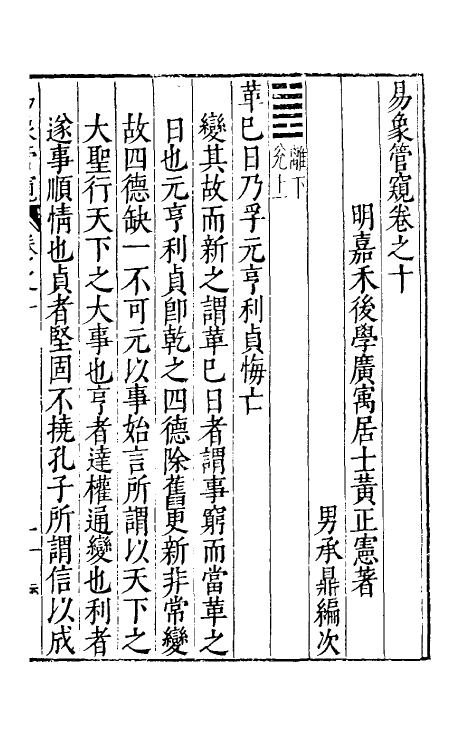 易象管窺卷之十
明嘉禾後學廣寓居士黃正憲著
男承鼎編次
離下
兌上
革巳日乃孚元亨利貞悔亡
變其故而新之謂革巳日者謂事窮而當革之
日也元亨利貞卽乾之四德除舊更新非常變
故四德缺一不可元以事始言所謂以天下之
大聖行天下之大事也亨者達權通變也利者
遂事順情也貞者堅固不撓孔子所謂信以成